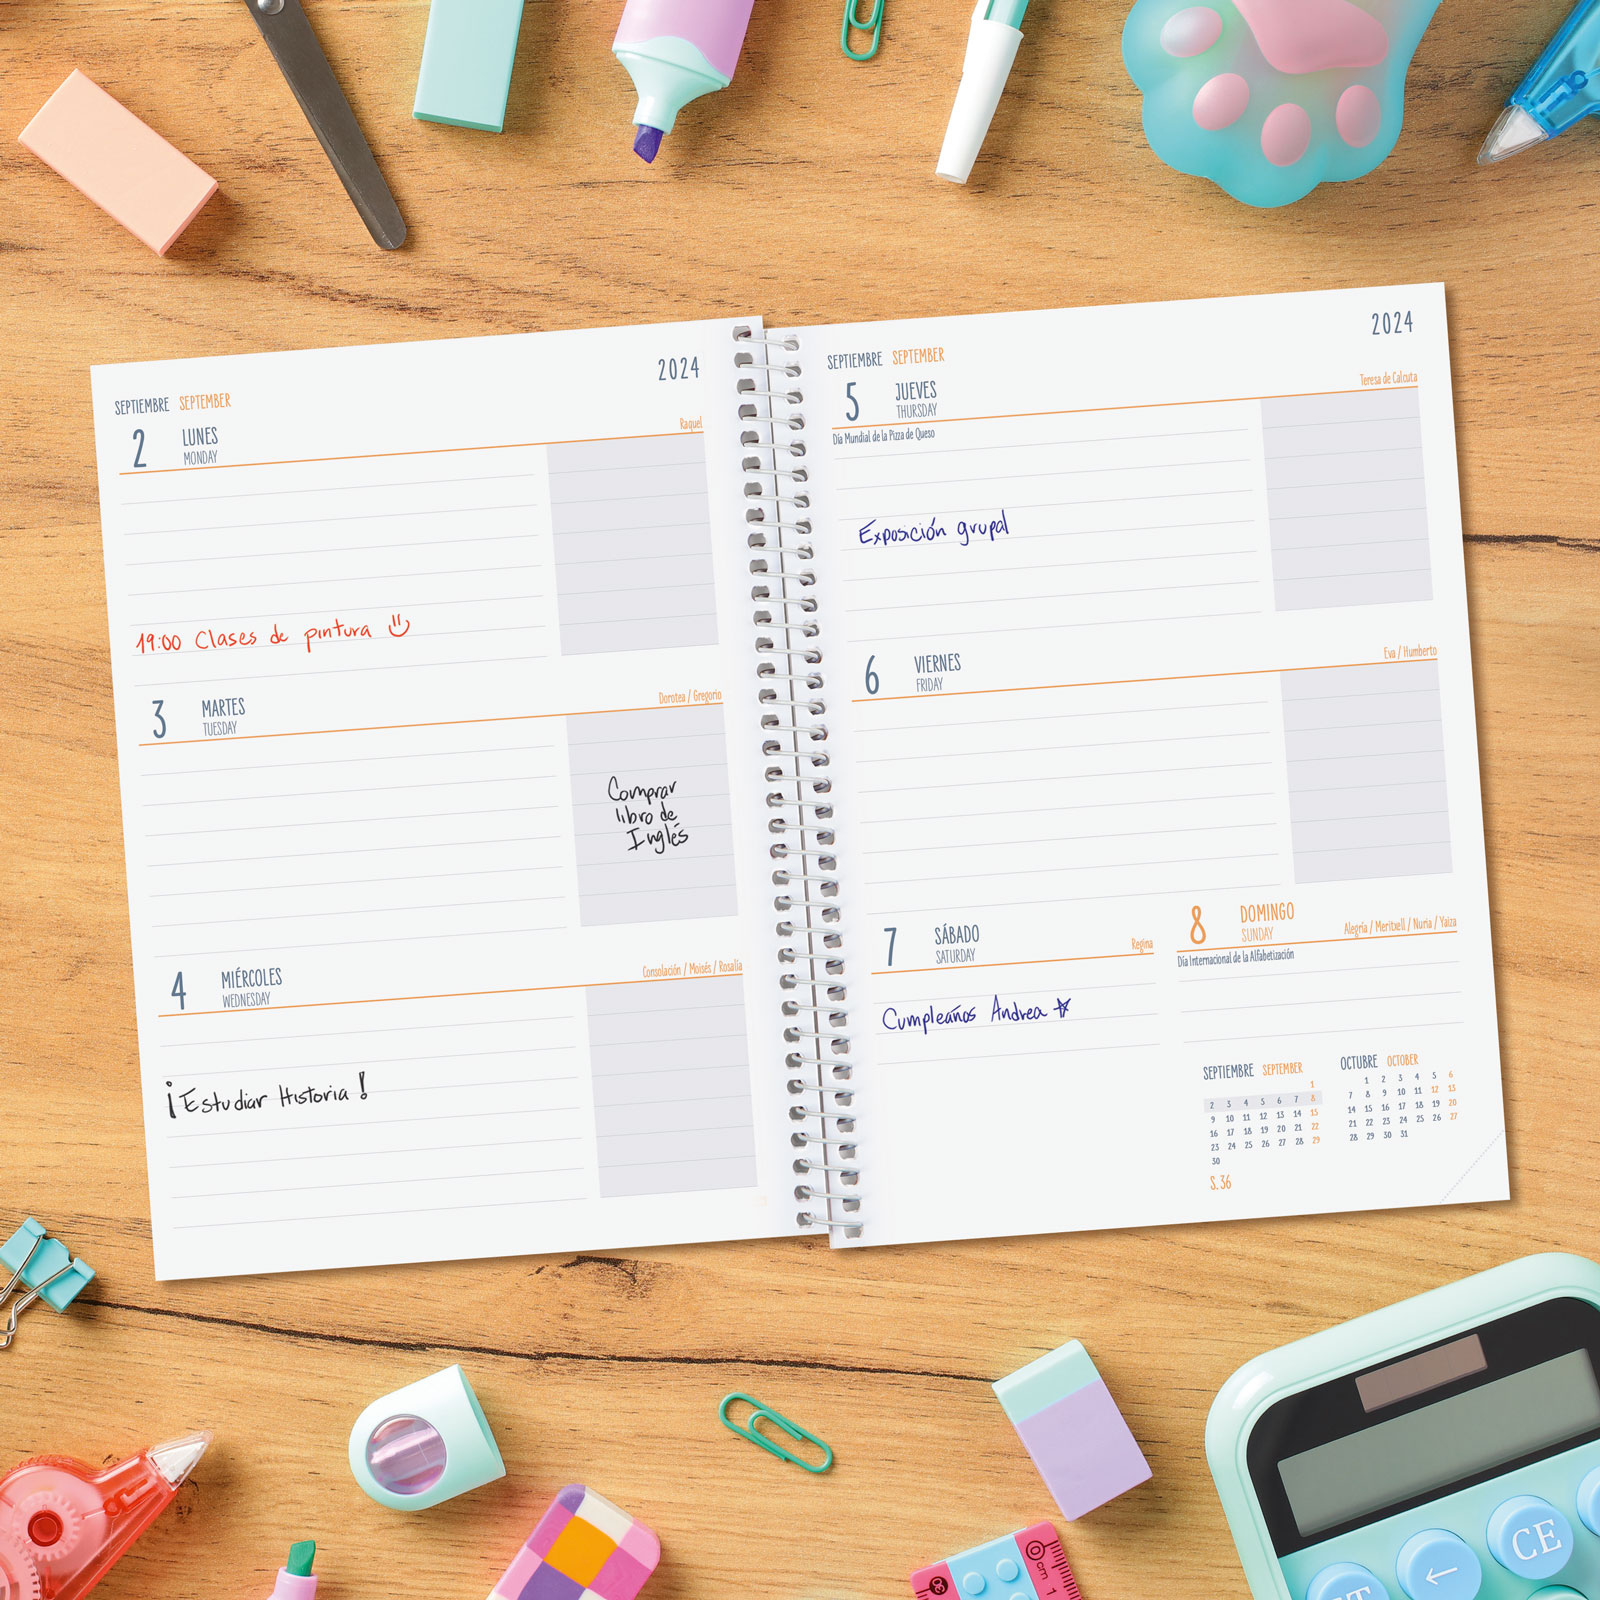 2024
SEPTIEMBRE SEPTEMBER
2 LUNES
MONDAY
Raquel
19:00 Clases de pintura
3 MARTES
TUESDAY
Dorotea / Gregorio
Comprar
libro de
Inglés
4 MIÉRCOLES
WEDNESDAY
Consolación / Moisés / Rosalía
¡Estudiar Historia!
2024
SEPTIEMBRE SEPTEMBER
5 JUEVES
THURSDAY
Teresa de Calcuta
Día Mundial de la Pizza de Queso
Exposición grupal
6 VIERNES
FRIDAY
Eva / Humberto
7 SÁBADO
SATURDAY
Regina
Cumpleaños Andrea
8 DOMINGO
SUNDAY
Alegría / Meritxell / Nuria / Yaiza
Día Internacional de la Alfabetización
SEPTIEMBRE SEPTEMBER
1
2 3 4 5 6 7 8
9 10 11 12 13 14 15
16 17 18 19 20 21 22
23 24 25 26 27 28 29
30
S. 36
OCTUBRE OCTOBER
1 2 3 4 5 6
7 8 9 10 11 12 13
14 15 16 17 18 19 20
21 22 23 24 25 26 27
28 29 30 31
CE
←
0
cm 1